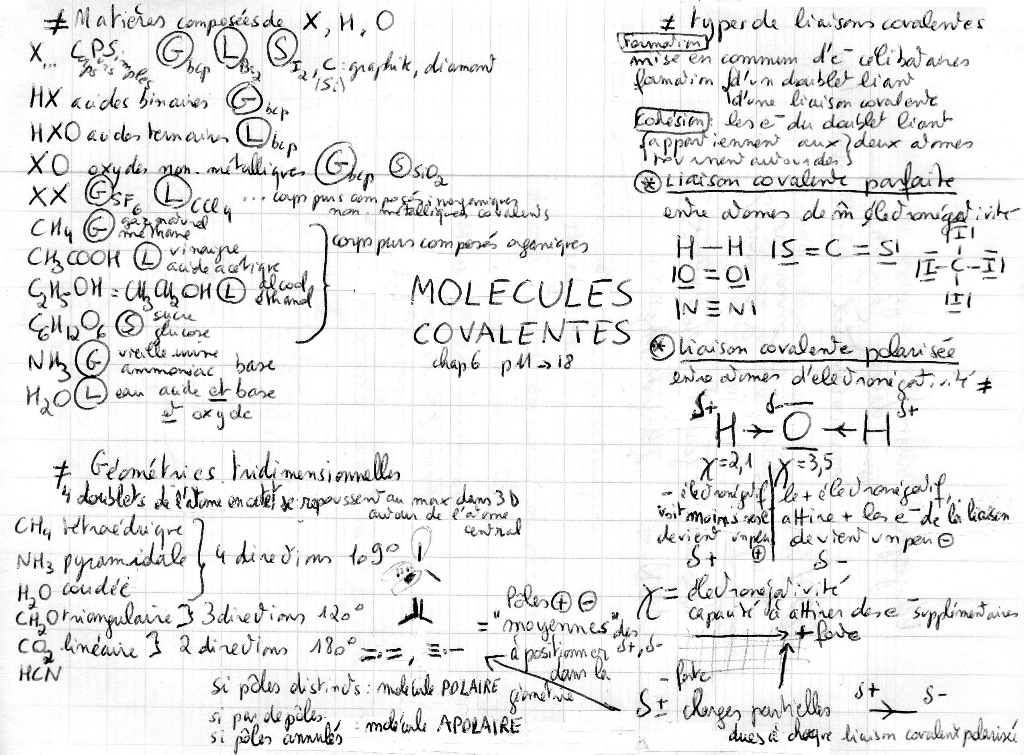 ≠ Matières composées de X, H, O
X... CPS, Corps purs simples Ⓖ bcp Ⓛ Br₂ Ⓢ I₂, C : graphite, diamant
(Si)
HX acides binaires Ⓖ bcp
HXO acides ternaires Ⓛ bcp
XO oxydes non-métalliques Ⓖ bcp Ⓢ SiO₂
XX Ⓖ SF₆ Ⓛ CCl₄ ... corps purs composés inorganiques
non-métalliques covalents
CH₄ Ⓖ gaz naturel
méthane
CH₃COOH Ⓛ vinaigre
acide acétique
C₂H₅-OH = CH₃CH₂OH Ⓛ alcool
éthanol
C₆H₁₂O₆ Ⓢ sucre
glucose
corps purs composés organiques
NH₃ Ⓖ vieille urine
ammoniac base
H₂O Ⓛ eau acide et base
et oxyde
MOLECULES
COVALENTES
chap 6 p 11 → 18
≠ Géométries tridimensionnelles
4 doublets de l'atome en octet se repoussent au max dans 3D
autour de l'atome
central
CH₄ tétraédrique
NH₃ pyramidale } 4 directions 109°
H₂O coudée
CH₂O triangulaire } 3 directions 120°
CO₂ linéaire } 2 directions 180° =·=, ≡·-
HCN
= Pôles ⊕ ⊖
"moyennes" des δ+, δ-
à positionner
dans la
géométrie
si pôles distincts : molécule POLAIRE
si pas de pôles
si pôles annulés : molécule APOLAIRE
≠ types de liaisons covalentes
Formation
mise en commun d'e⁻ célibataires
formation { d'un doublet liant
d'une liaison covalente
Cohésion : les e⁻ du doublet liant
{ appartiennent aux } deux atomes
tournent autour des }
⊛ Liaison covalente parfaite
entre atomes de m̂ électronégativité
H – H |S = C = S|
|O = O|
|N ≡ N|
|I|
|I – C – I|
|I|
⊛ Liaison covalente polarisée
entre atomes d'électronégativité ≠
δ+ δ- δ+
H → O ← H
χ = 2,1 | χ = 3,5
- électronégatif | le + électronégatif,
voit moins ses e⁻ | attire + les e⁻ de la liaison
devient un peu ⊕ | devient un peu ⊖
δ+ δ-
χ = électronégativité
capacité à attirer des e⁻ supplémentaires
→ + forte
- forte
δ± charges partielles δ+ → δ-
dues à chaque liaison covalente polarisée